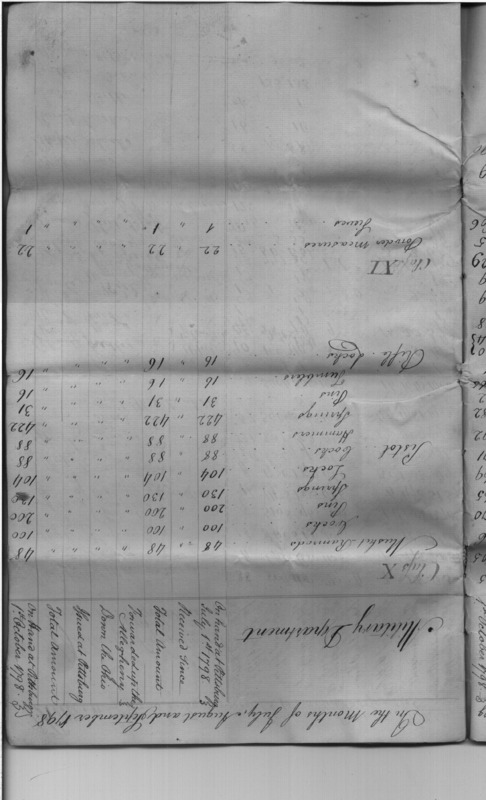 In the Months of July, August and September 1798
Military Department
On hand at Pittsburg July 1st 1798
Received since
Total Amount
Forwarded up the Allegheny &
Down the Ohio
Issued at Pittsburg
Total Amount
On Hand at Pittsburg 1st October 1798
Class X
Musket Ramrods 48 " 48 " " " " 48
Cocks 100 " 100 " " " " 100
Pins 200 " 200 " " " " 200
Springs 130 " 130 " " " " 130
Locks 104 " 104 " " " " 104
Pistol Cocks 88 " 88 " " " " 88
Hammers 88 " 88 " " " " 88
Springs 422 " 422 " " " " 422
Pins 31 " 31 " " " " 31
Tumblers 16 " 16 " " " " 16
Rifle Locks 16 " 16 " " " " 16
Class XI
Powder Measures 22 " 22 " " " " 22
1 " 1 " " " " 1